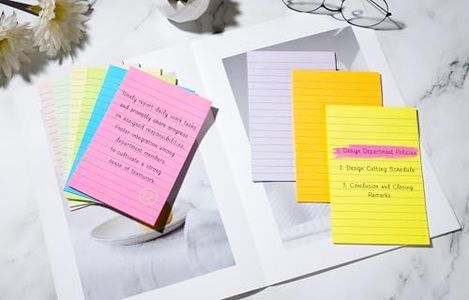 Timely report daily work tasks
and promptly share progress
on assigned responsibilities.
Foster integration among
department members
to cultivate a strong
sense of teamwork.
1. Design Department Policies
2. Design Cutting Schedule
3. Conclusion and Closing
Remarks